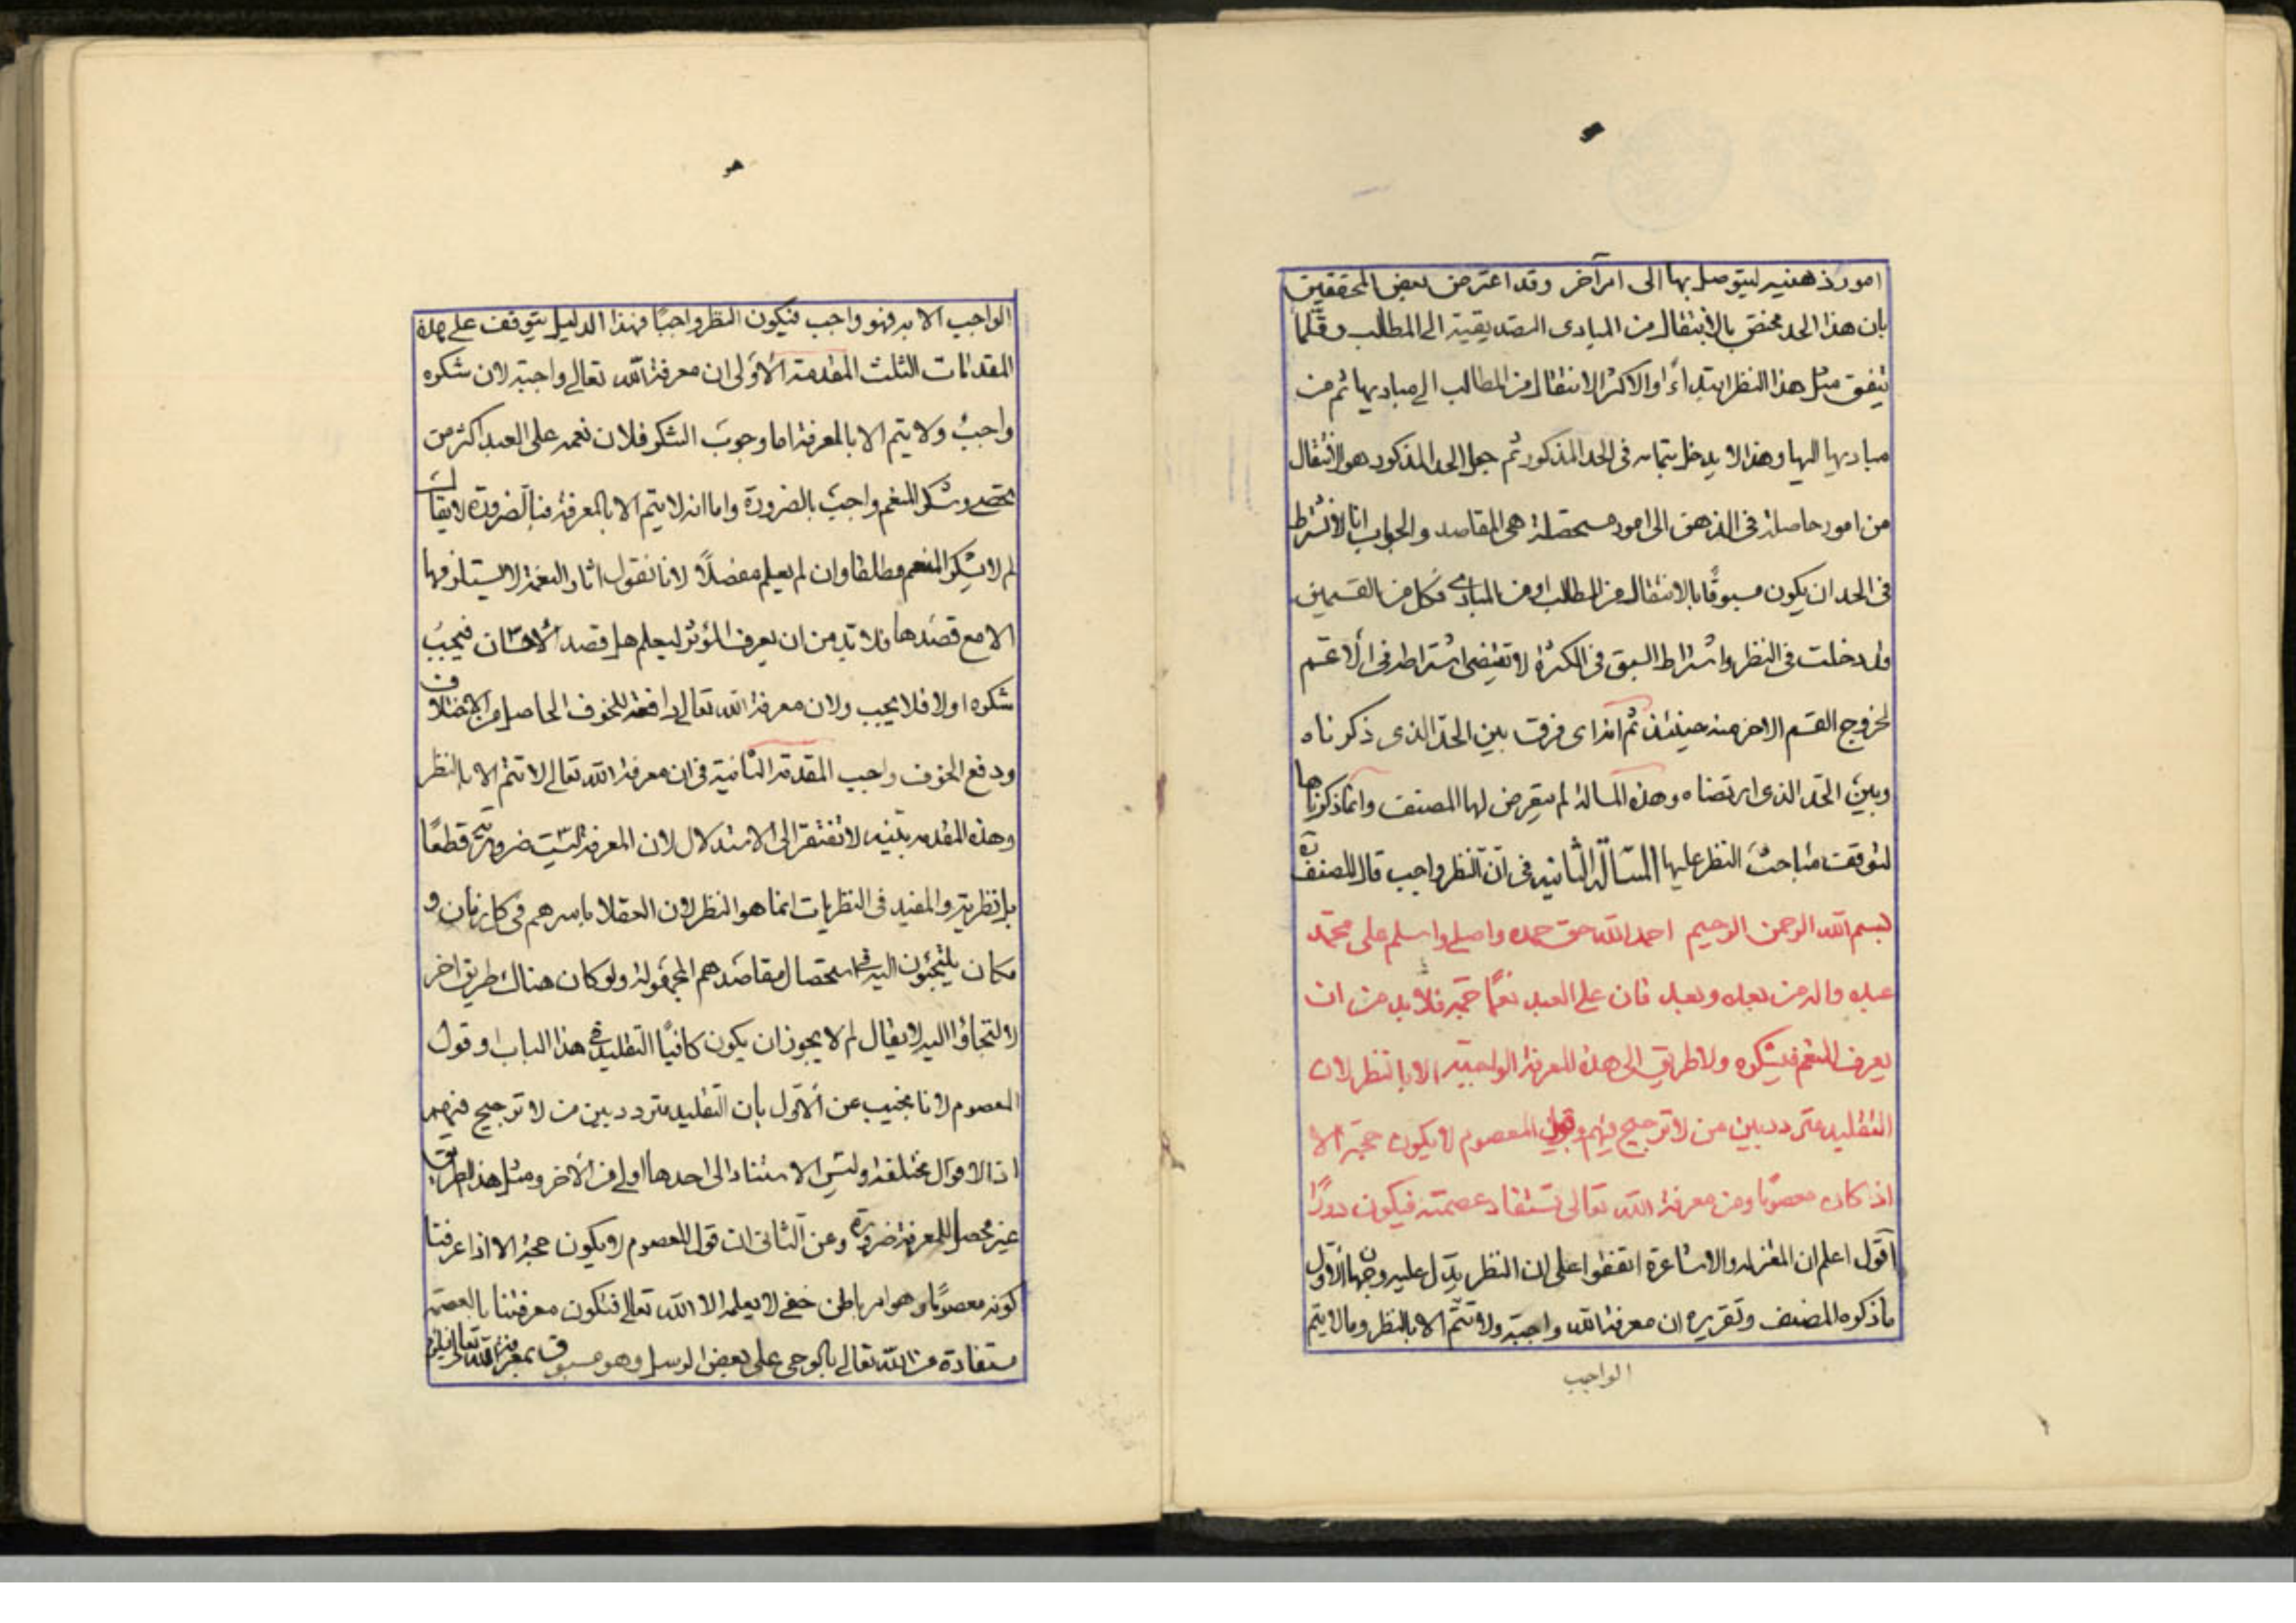 امور ذهنیه لیتوصل بها الی امر آخر وقد اعترض بعض المحققین
بان هذا الحد مختص بالانتقال من المبادی التصدیقیة الی المطالب وقلما
یتفق مثل هذا النظر ابتداءً اوالاکثر الانتقال من المطالب الی مبادیها ثم من
مبادیها الیها وهذا لا یدخل بتمامه فی الحد المذکور ثم جعل الحد المذکور هو الانتقال
من امور حاصلة فی الذهن الی امور مستحصلة هی المقاصد والجواب انا لا نشترط
فی الحد ان یکون مسبوقًا بالانتقال من المطالب او من المبادی فکل من القسمین
قد دخلت فی النظر واشتراط السبق فی الکثرة لا تقتضی اشتراطه فی الاعم
لخروج القسم الاخر منه حینئذ ثم انه ای فرق بین الحدّ الذی ذکرناه
وبین الحدّ الذی ارتضاه وهذه المسالة لم یتعرض لها المصنف وانما ذکرناها
لتوقف مباحث النظر علیها المسالة الثانیه فی انّ النظر واجب قال المصنف
بسم الله الرحمن الرحیم احمد الله حق حمده واصلی واسلم علی محمّد
عبده واله من بعده وبعد فان علی العبد نعمًا جمّة فلا بد من ان
یعرف المنعم فیشکره ولا طریق الی هذه المعرفة الواجبة الا بالنظر لان
التقلید متردد بین من لا ترجیح فیهم وقول المعصوم لا یکون حجّة الا
اذا کان معصومًا ومن معرفة الله تعالی تستفاد عصمته فیکون دورًا
اقول اعلم ان المعتزلة والاشاعرة اتفقوا علی ان النظر یدّل علیه وجهان الاول
ما ذکره المصنف وتقریره ان معرفة الله واجبة ولا تتمّ الا بالنظر وما لا یتم
الواجب
هو
الواجب الا به فهو واجب فیکون النظر واجبًا فهذا الدلیل یتوقف علی هذه
المقدمات الثلث المقدمة الاولی ان معرفة الله تعالی واجبة لان شکره
واجبٌ ولا یتم الا بالمعرفة اما وجوب الشکر فلان نعمه علی العبد اکثر من
تحصی وشکر المنعم واجب بالضرورة واما انه لا یتم الا بالمعرفة فبالضرورة لا یقال
لم لا یشکر المنعم مطلقا وان لم یعلم مفصلًا لانا نقول اثار النعمة لا یستلزمها
الا مع قصدها فلا بّد من ان یعرف المؤثر لیعلم هل قصد الاحسان فیجب
شکره اولا فلا یجب ولان معرفة الله تعالی دافعة للخوف الحاصل من الاختلاف
ودفع الخوف واجب المقدمة الثانیة فی ان معرفة الله تعالی لا تتم الا بالنظر
وهذه المقدمه بیّنیه لا تفتقر الی الاستدلال لان المعرفة لیست ضروریة قطعًا
بل نظریة والمفید فی النظریات انما هو النظر لان العقلا باسرهم فی کل زمان و
مکان یلتجئون الیه فی استحصال مقاصدهم المجهولة ولو کان هناک طریق اخر
لالتجاؤا الیه لا یقال لم لا یجوز ان یکون کافیًا التقلید فی هذا الباب او قول
المعصوم لانا نجیب عن الاوّل بان التقلید متردد بین من لا ترجیح فیهم
اذ الاقوال مختلفة ولیس الاستناد الی احدها اولی من الاخر ومثل هذا الطریق
غیر محصل للمعرفة ضرورة وعن الثانی ان قول المعصوم لا یکون حجة الا اذا عرفنا
کونه معصومًا وهو امر باطن خفی لا یعلمه الا الله تعالی فتکون معرفتنا بالعصمة
مستفادة من الله تعالی بالوحی علی بعض الرسل وهو مسبوق بمعرفة الله تعالی فیلزم